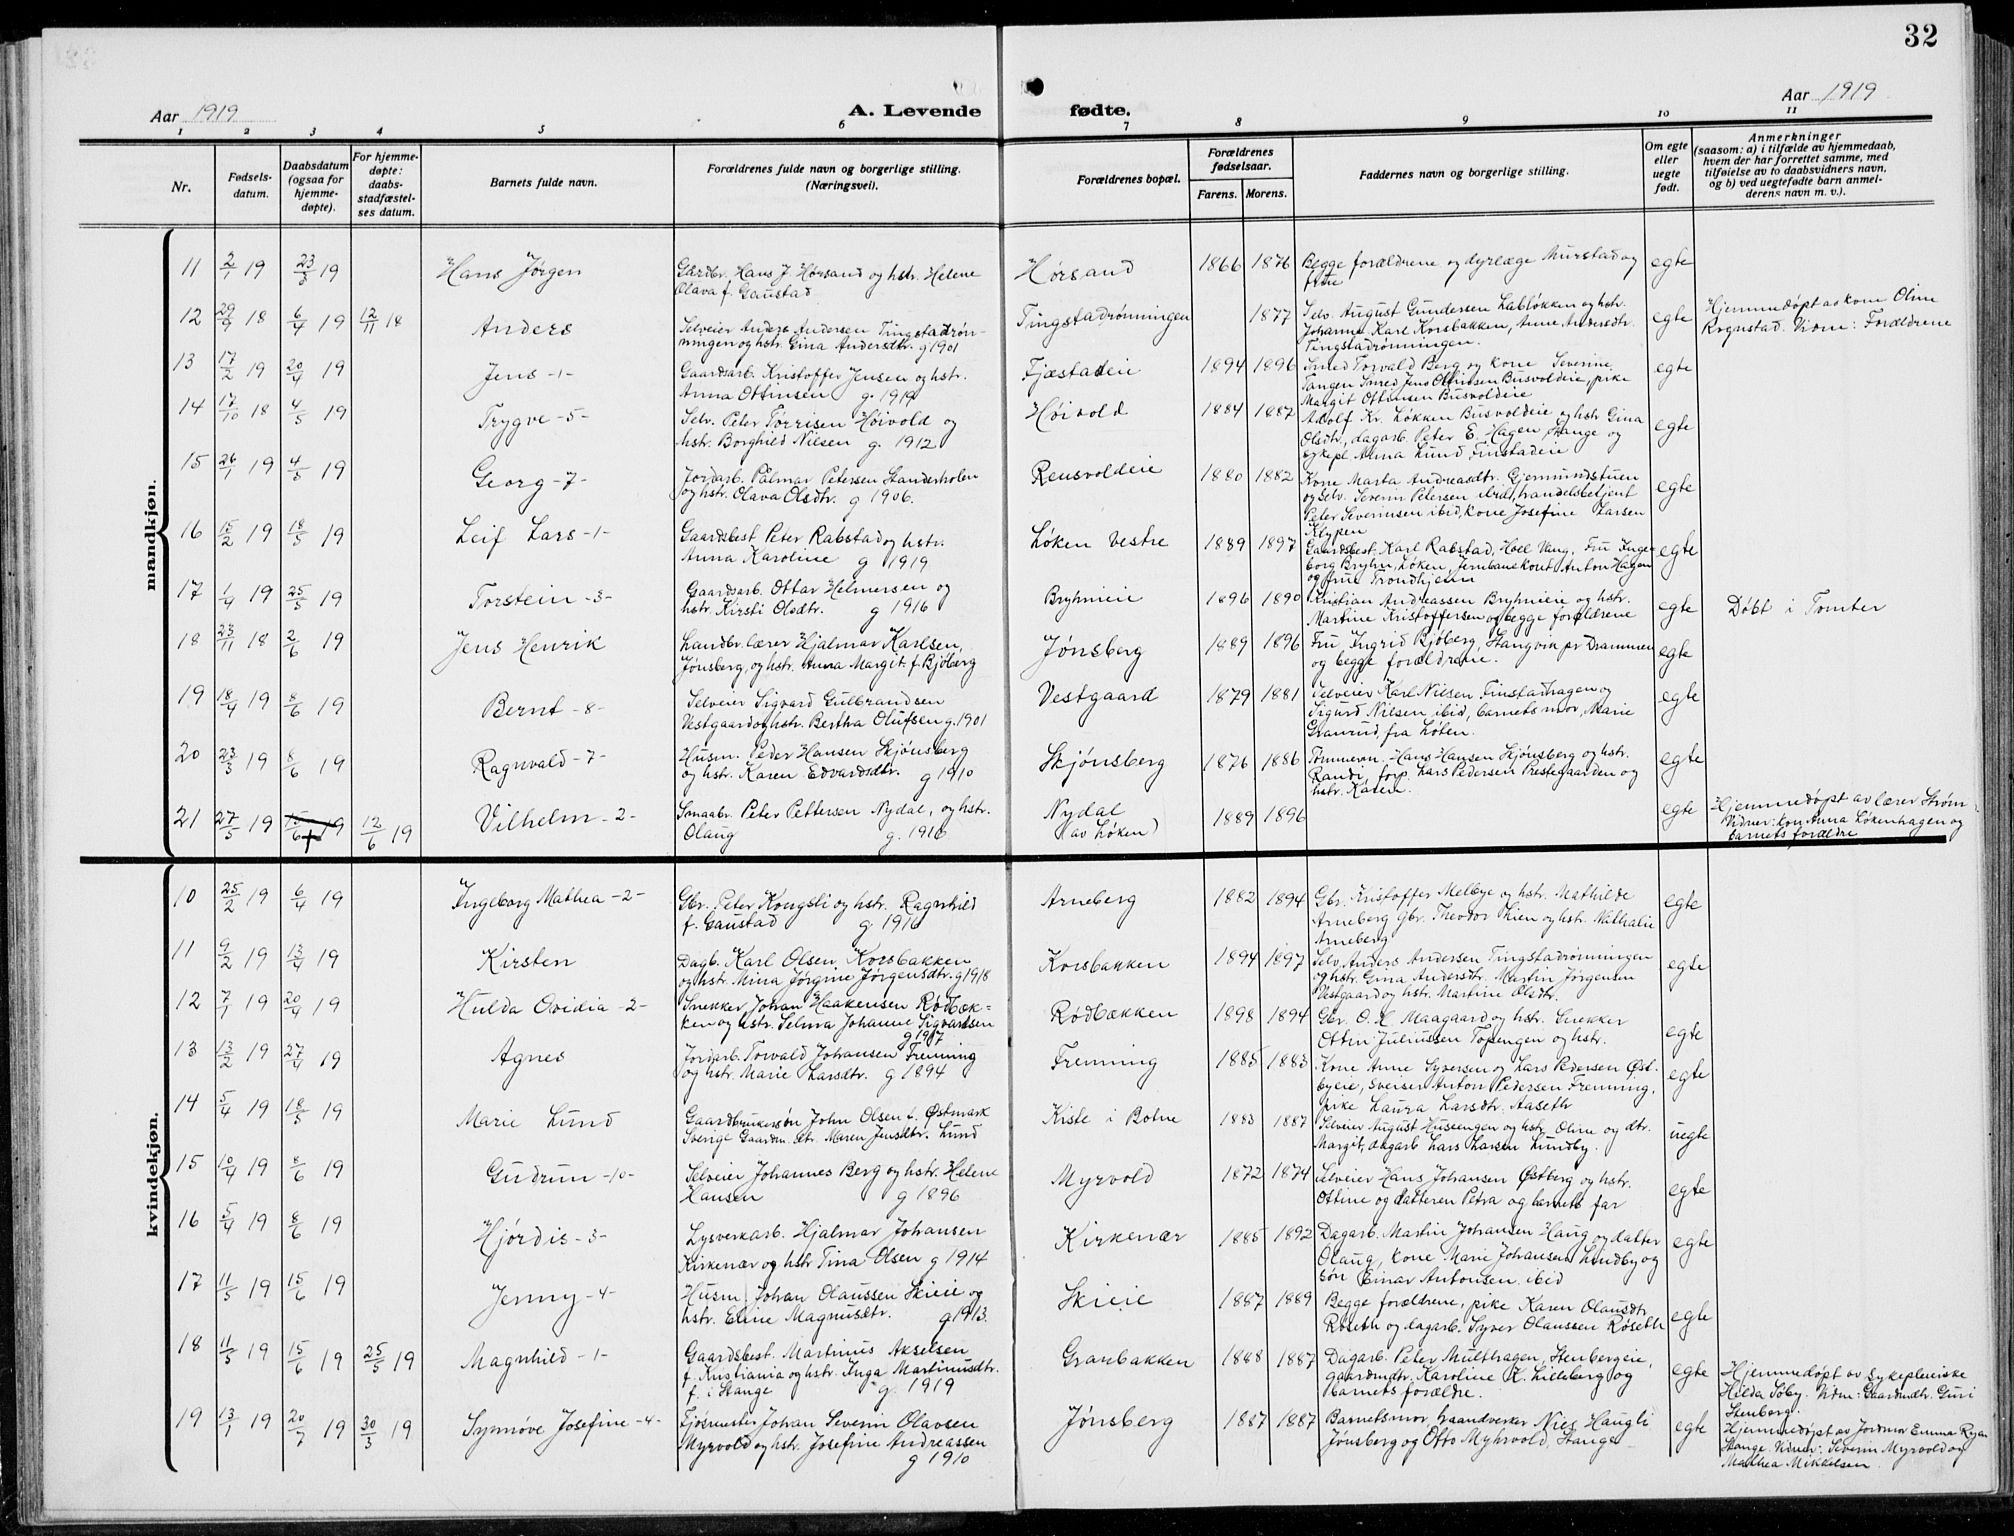 32
Aar 1919
A. Levende fødte.
Aar 1919
1 2 3 4 5 6 7 8 9 10 11
Nr.
Fødsels-
datum.
Daabsdatum
(ogsaa for
hjemme-
døpte).
For hjemme-
døpte:
daabs-
stadfæstel-
ses datum.
Barnets fulde navn.
Forældrenes fulde navn og borgerlige stilling.
(Næringsvei).
Forældrenes bopæl.
Forældrenes
fødselsaar.
Farens. Morens.
Faddernes navn og borgerlige stilling.
Om egte
eller
uegte
født.
Anmerkninger
(saasom: a) i tilfælde av hjemmedaab,
hvem der har forrettet samme, med
tilføielse av to daabsvidners navn,
og b) ved uegtefødte barn anmel-
derens navn m. v.).
mandkjøn.
11 2/1 19 23/3 19 Hans Jørgen
Gardbr. Hans J. Hørsand og hstr. Helene
Olava f. Gaustad
Hørsand 1866 1876
Begge forældrene og dyrlæge Murstad og
frue
egte
12 29/9 18 6/4 19 12/11 18 Anders
Selveier Anders Andersen Tingstadrøn-
ningen og hstr. Gina Andersdtr. g 1901
Tingstadrønningen 1877
Selv. August Gundersen Labløkken og hstr.
Johanne, Karl Korsbakken, Anne Andersdtr.
Tingstadrønningen.
egte
Hjemmedøpt av kone Oline
Rognstad. Vidne: Forældrene
13 17/2 19 20/4 19 Jens -1-
Gaardsarb. Kristoffer Jensen og hstr.
Anna Ottinsen g. 1919
Fjæstadeie 1894 1896
Smed Torvald Berg og kone Severine
Tangen Smed Jens Ottinsen Busvoldeie, pike
Margit Ottinsen Busvoldeie
egte
14 17/10 18 4/5 19 Trygve -5-
Selv. Peter Tørrisen Høivold og
hstr. Borghild Nilsen g. 1912
Høivold 1884 1887
Adolf Kr. Løkken Busvoldeie og hstr Gina
Olsdtr., dagarb. Peter E. Hagen, Stange og
sykepl. Anna Lund Finstadeie
egte
15 26/1 19 4/5 19 Georg -7-
Jordarb. Palmar Petersen Standerholen
og hstr. Olava Olsdtr. g 1906.
Reusvoldeie 1880 1882
Kone Marta Andreasdtr. Gjermundstuen
og Selv. Severin Petersen ibid, handelsbetjent
Peter Severinsen ibid, kone Josefine Larsen
Klypen
egte
16 15/2 19 18/5 19 Leif Lars -1-
Gaardsbest. Peter Rabstad og hstr.
Anna Karoline g 1919
Løken vestre 1889 1897
Gaardsbest. Karl Rabstad, Hoel Vang, Fru Inge-
borg Bryhn, Løken, Jernbanekont. Anton Hagen
og frue Trondhjem
egte
17 1/4 19 25/5 19 Torstein -3-
Gaardsarb. Ottar Helmersen og
hstr. Kirsti Olsdtr. g 1916
Bryhnieie 1896 1890
Kristian Andreassen Bryhnieie og hstr.
Martine Kristoffersen og begge forældrene
egte
Døbt i Tomter
18 23/11 18 2/6 19 Jens Henrik
Landbr. lærer Hjalmar Karlsen,
Jønsberg, og hstr. Anna Margit f. Bjöberg
Jønsberg 1889 1896
Fru Ingrid Bjöberg, Stangvik pr Drammen
og begge forældrene.
egte
19 18/4 19 8/6 19 Bernt -8-
Selveier Sigvard Gulbrandsen
Vestgaard og hstr. Bertha Olufsen g. 1901
Vestgaard 1879 1881
Selveier Karl Nilsen Finstadhagen og
Sigurd Nilsen, ibid, barnets mor, Marie
Granrud, fra Løten.
egte
20 23/3 19 8/6 19 Ragnvald -7-
Husm. Peder Hansen Skjönsberg
og hstr. Karen Edvardsdtr. g 1910
Skjönsberg 1876 1886
Tømmerm. Hans Hansen Skjönsberg og hstr.
Randi, forp. Lars Pedersen Prestegaarden og
hstr. Karen.
egte
21 27/5 19 15/6 19 12/6 19 Vilhelm -2-
Smaabr. Peter Pettersen Nydal, og hstr.
Olaug g. 1916
Nydal
(av Løken) 1889 1896
egte
Hjemmedøpt av lærer Strøm.
Vidner: kon Anna Løkenhagen og
barnets forældre
kvindekjøn.
10 25/2 19 6/4 19 Ingeborg Mathea -2-
Gbr. Peter Kongsli og hstr. Ragnhild
f. Gaustad g. 1916
Arneberg 1882 1894
Gbr. Kristoffer Melbye og hstr. Mathilde
Arneberg Gbr. Theodor Lien og hstr. Nathalie
Arneberg
egte
11 9/2 19 13/4 19 Kirsten
Dagb. Karl Olsen Korsbakken
og hstr. Mina Jørgine Jørgensdtr. g 1918
Korsbakken 1894 1897
Selv. Anders Andersen Tingstadrønningen
og hstr. Gina Andersdtr. Martin Jørgensen
Vestgaard og hstr. Martine Olsdtr.
egte
12 7/1 19 20/4 19 Hulda Ovidia -2-
Snekker Johan Haakensen Rødbæk-
ken og hstr. Selma Johanne Sigvardsen
g 1917
Rødbækken 1898 1894
Gbr. O. H. Maagaard og hstr. Snekker
Ottin Juliussen Topengen og hstr.
egte
13 13/2 19 27/4 19 Agnes
Jordarb. Torvald Johansen Frenning
og hstr. Marie Larsdtr. g 1894
Frenning 1885 1883
Kone Anne Syversen og Lars Pedersen Øst-
byeie, sveiser Anton Pedersen Frenning,
pike Laura Larsdtr. Aaseth
egte
14 5/4 19 18/5 19 Marie Lund
Gaardbrukersøn John Olsen f. Østmark
Sverige Gaardm. dtr. Maren Jensdtr. Lund
Kiste i Botne 1883 1887
Selveier August Huseengen og hstr. Oline og dtr.
Margit, dagarb Lars Larsen Lundby.
uegte
15 10/4 19 8/6 19 Gudrun -10-
Selveier Johannes Berg og hstr. Helene
Hansen g 1896
Myrvold 1872 1874
Selveier Hans Johansen Østberg og hstr.
Ottine og datteren Petra og barnets far
egte
16 5/4 19 8/6 19 Hjørdis -3-
Lysverkarb. Hjalmar Johansen
Kirkenær og hstr Tina Olsen g 1914
Kirkenær 1885 1892
Dagarb. Martin Johansen Haug og datter
Olaug, kone Marie Johansen Lundby og
søn Einar Antonsen ibid
egte
17 11/5 19 15/6 19 Jenny -4-
Husm. Johan Olaussen Skieie og
hstr. Eline Magnusdtr. g 1913.
Skieie 1887 1889
Begge forældrene, pike Karen Olausdtr.
Røseth og dagarb. Syver Olaussen Røseth
egte
18 11/5 19 15/6 19 25/5 19 Magnhild -1-
Gaardsbest. Martinus Akselsen
f. Kristiania og hstr. Inga Martinusdtr.
f. i Stange g. 1919
Granbakken 1888 1887
Dagarb. Peter Multhagen, Stenbergeie,
gaardmdtr. Karoline K. Lilleberg og
Barnets forældre.
egte
Hjemmedøpt av Sykepleierske
Hilda Søby. Vidn: Gaardmdtr. Guri
Stenberg.
19 13/1 19 20/7 19 30/3 19 Synnöve Josefine -4-
Fjøsmester Johan Severin Olavsen
Myrvold og hstr. Josefine Andreassen
g 1910
Jønsberg 1887 1887
Barnets mor, haandverker Niels Haugli
Jønsberg og Otto Myhrvold, Stange
egte
Hjemmedøpt av Jordmor Emma Ryen
Stange. Vidner: Severin Myrvold og
Mathea Mikkelsen.